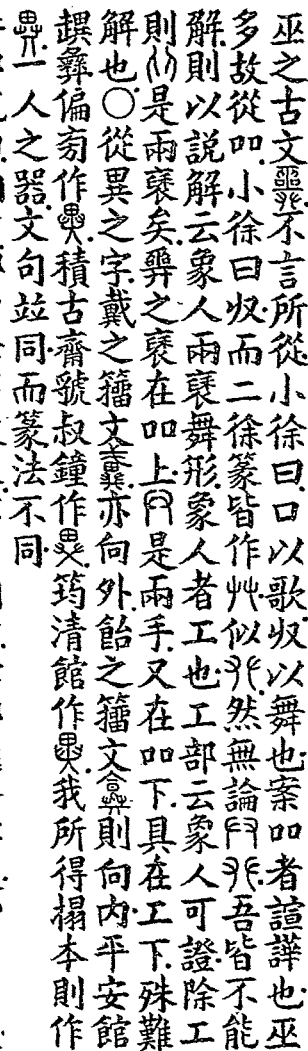 巫之古文不言所從小徐曰口以歌収以舞也案吅者諠譁也巫
多故從吅小徐曰収而二徐篆皆作似然無論吾皆不能
解則以說解云象人兩褎舞形象人者工也工部云象人可證除工
則是兩褎矣之褎在吅上是兩手又在吅下具在工下殊難
解也○從異之字戴之籀文亦向外飴之籀文則向内平安館
彝偏旁作積古齋虢叔鐘作筠清館作我所得搨本則作
一人之器文句竝同而篆法不同